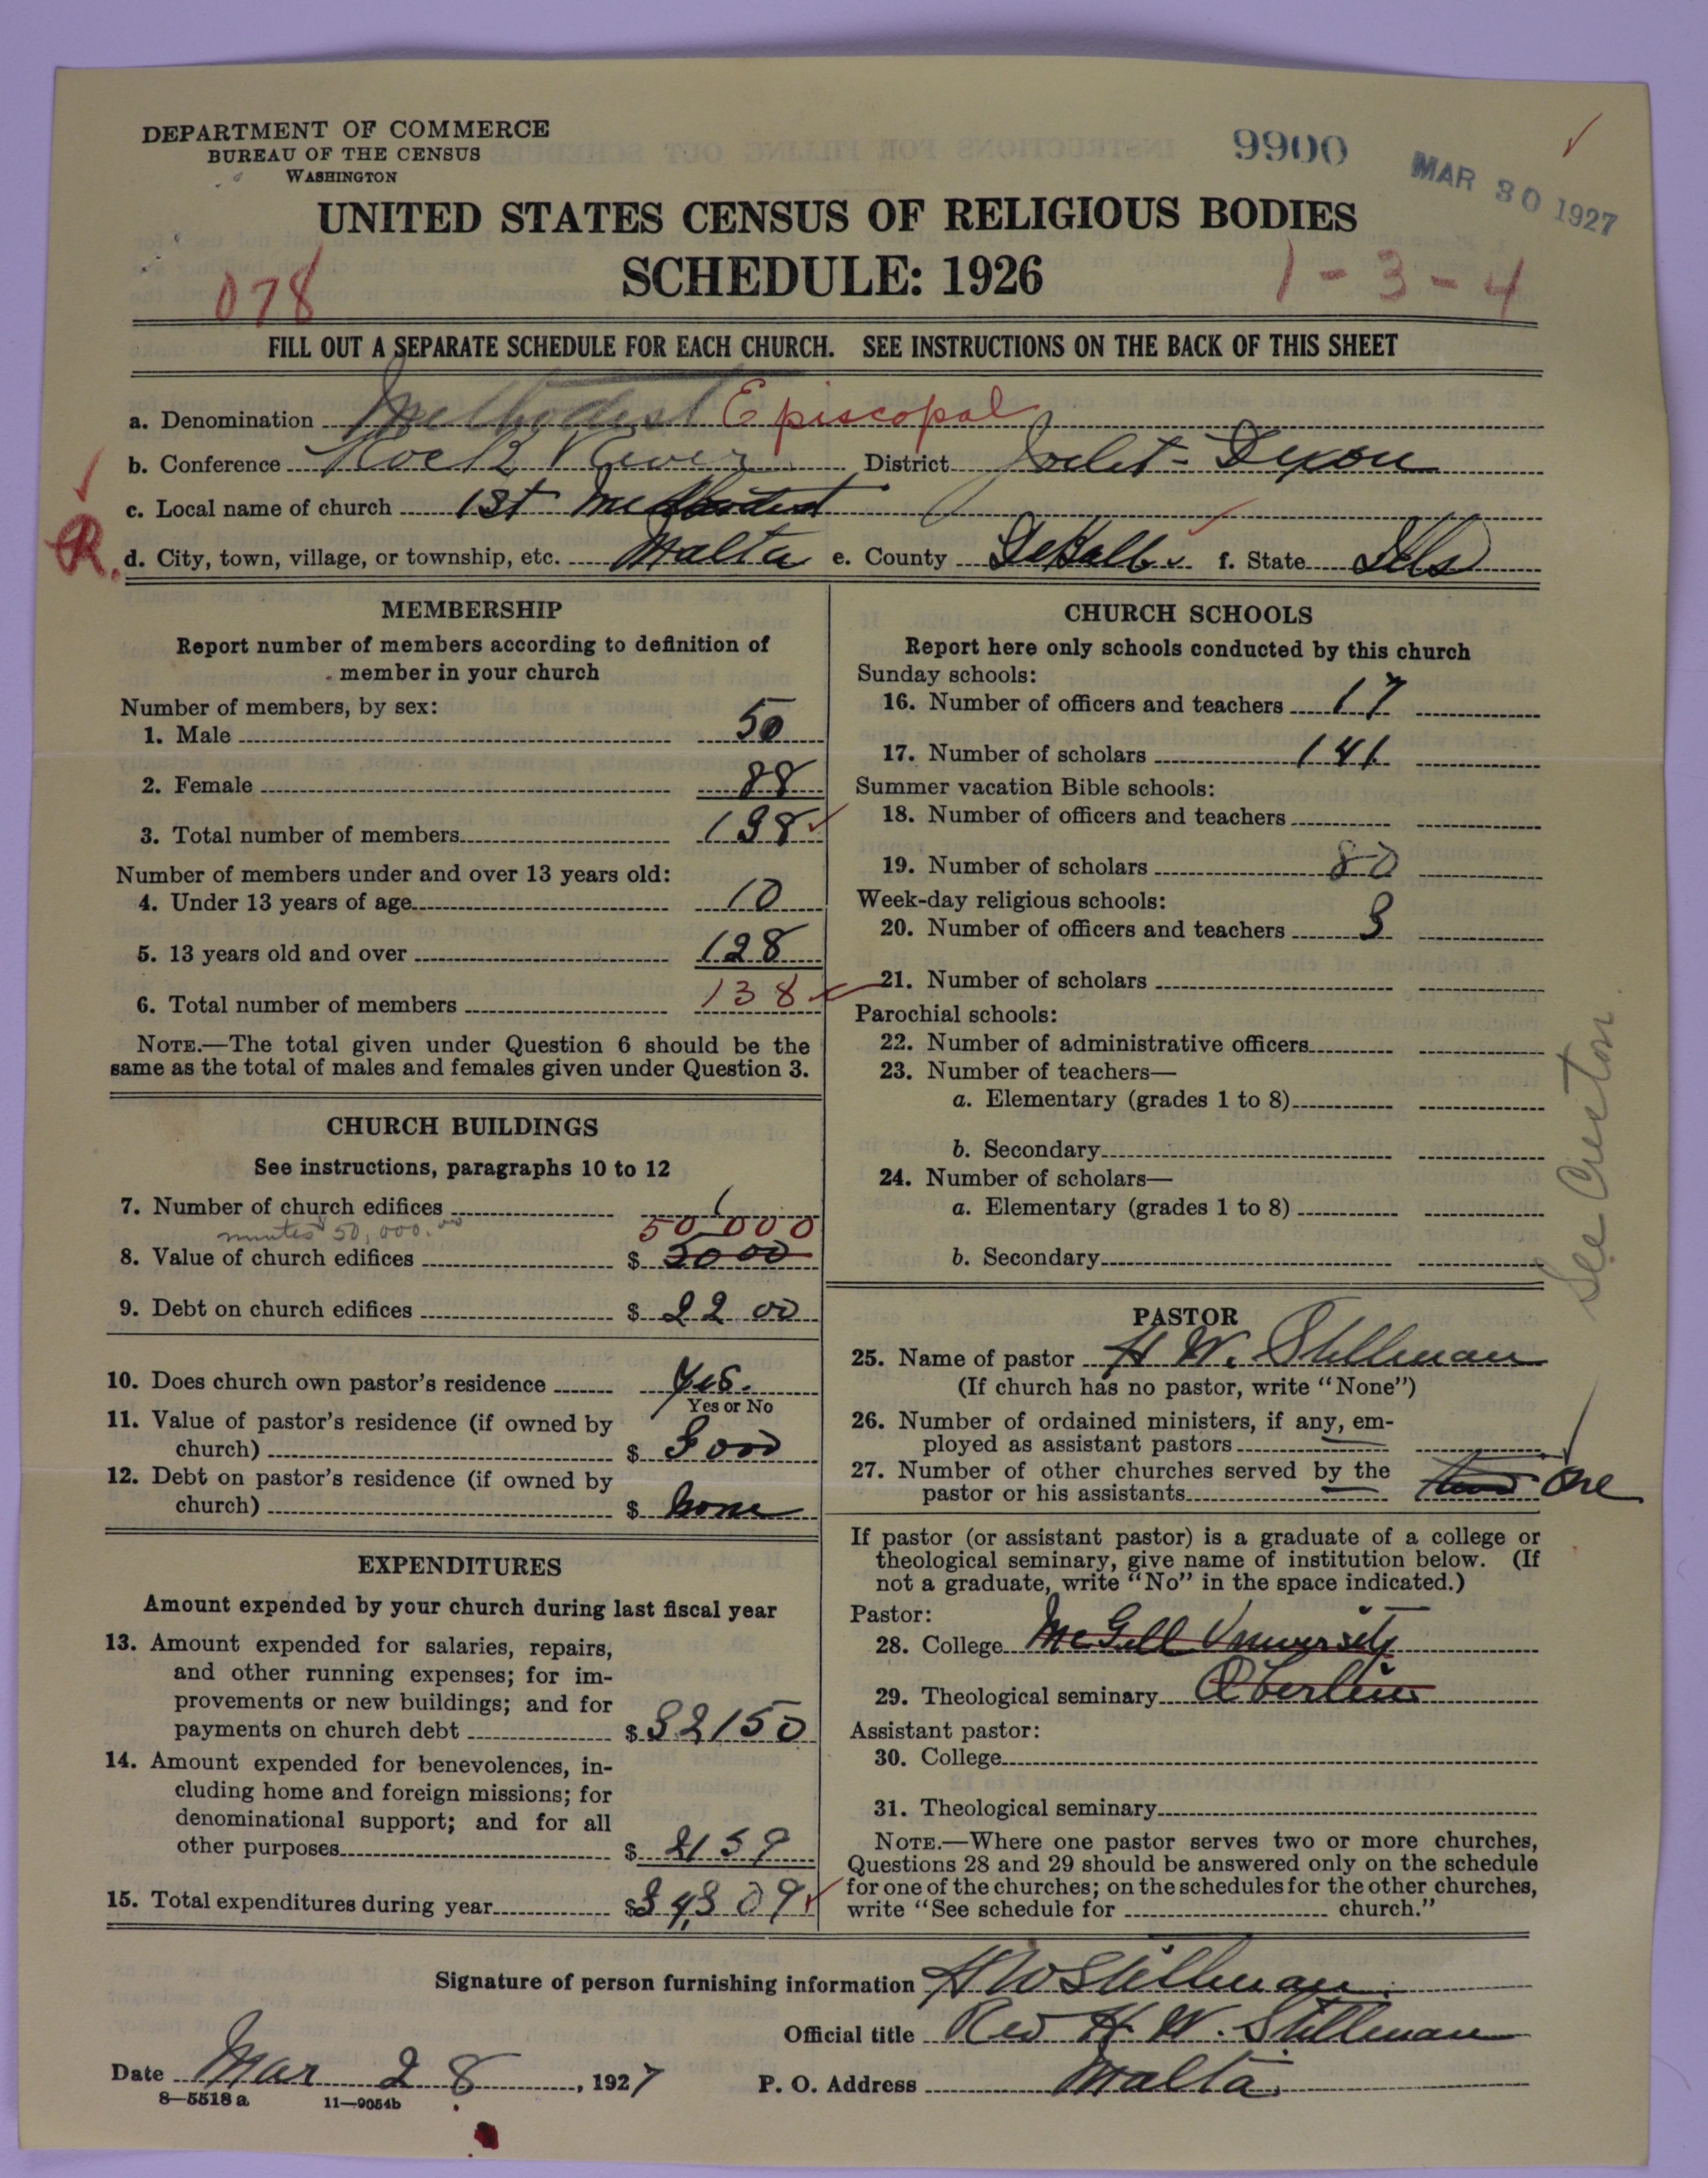 DEPARTMENT OF COMMERCE
BUREAU OF THE CENSUS
WASHINGTON
9900
MAR 30 1927
UNITED STATES CENSUS OF RELIGIOUS BODIES
SCHEDULE: 1926
078
1-3-4
FILL OUT A SEPARATE SCHEDULE FOR EACH CHURCH. SEE INSTRUCTIONS ON THE BACK OF THIS SHEET
a. Denomination Methodist Episcopal
b. Conference Rock River District Joliet-Dixon
c. Local name of church 1st Methodist
R.
d. City, town, village, or township, etc. Malta e. County DeKalb f. State Ills
MEMBERSHIP
Report number of members according to definition of
member in your church
Number of members, by sex:
1. Male 50
2. Female 88
3. Total number of members 138
Number of members under and over 13 years old:
4. Under 13 years of age 10
5. 13 years old and over 128
6. Total number of members 138
NOTE.—The total given under Question 6 should be the
same as the total of males and females given under Question 3.
CHURCH BUILDINGS
See instructions, paragraphs 10 to 12
7. Number of church edifices 1
minutes 50,000.00
50 000
8. Value of church edifices $ 5000
9. Debt on church edifices $ 2200
10. Does church own pastor's residence Yes.
Yes or No
11. Value of pastor's residence (if owned by
church) $ 3000
12. Debt on pastor's residence (if owned by
church) $ none
EXPENDITURES
Amount expended by your church during last fiscal year
13. Amount expended for salaries, repairs,
and other running expenses; for im-
provements or new buildings; and for
payments on church debt $ 32150
14. Amount expended for benevolences, in-
cluding home and foreign missions; for
denominational support; and for all
other purposes $ 2159
15. Total expenditures during year $ 34,309
CHURCH SCHOOLS
Report here only schools conducted by this church
Sunday schools:
16. Number of officers and teachers 17
17. Number of scholars 141
Summer vacation Bible schools:
18. Number of officers and teachers
19. Number of scholars 80
Week-day religious schools:
20. Number of officers and teachers 3
21. Number of scholars
Parochial schools:
22. Number of administrative officers
23. Number of teachers—
a. Elementary (grades 1 to 8)
b. Secondary
24. Number of scholars—
a. Elementary (grades 1 to 8)
b. Secondary
See Creston
PASTOR
25. Name of pastor H W. Stillman
(If church has no pastor, write "None")
26. Number of ordained ministers, if any, em-
ployed as assistant pastors
27. Number of other churches served by the
pastor or his assistants One
If pastor (or assistant pastor) is a graduate of a college or
theological seminary, give name of institution below. (If
not a graduate, write "No" in the space indicated.)
Pastor:
28. College McGill University
29. Theological seminary Oberlin
Assistant pastor:
30. College
31. Theological seminary
NOTE.—Where one pastor serves two or more churches,
Questions 28 and 29 should be answered only on the schedule
for one of the churches; on the schedules for the other churches,
write "See schedule for church."
Signature of person furnishing information H W Stillman
Official title Rev H. W. Stillman
Date Mar 28, 1927 P. O. Address Malta.
8—5518 a 11—9054b